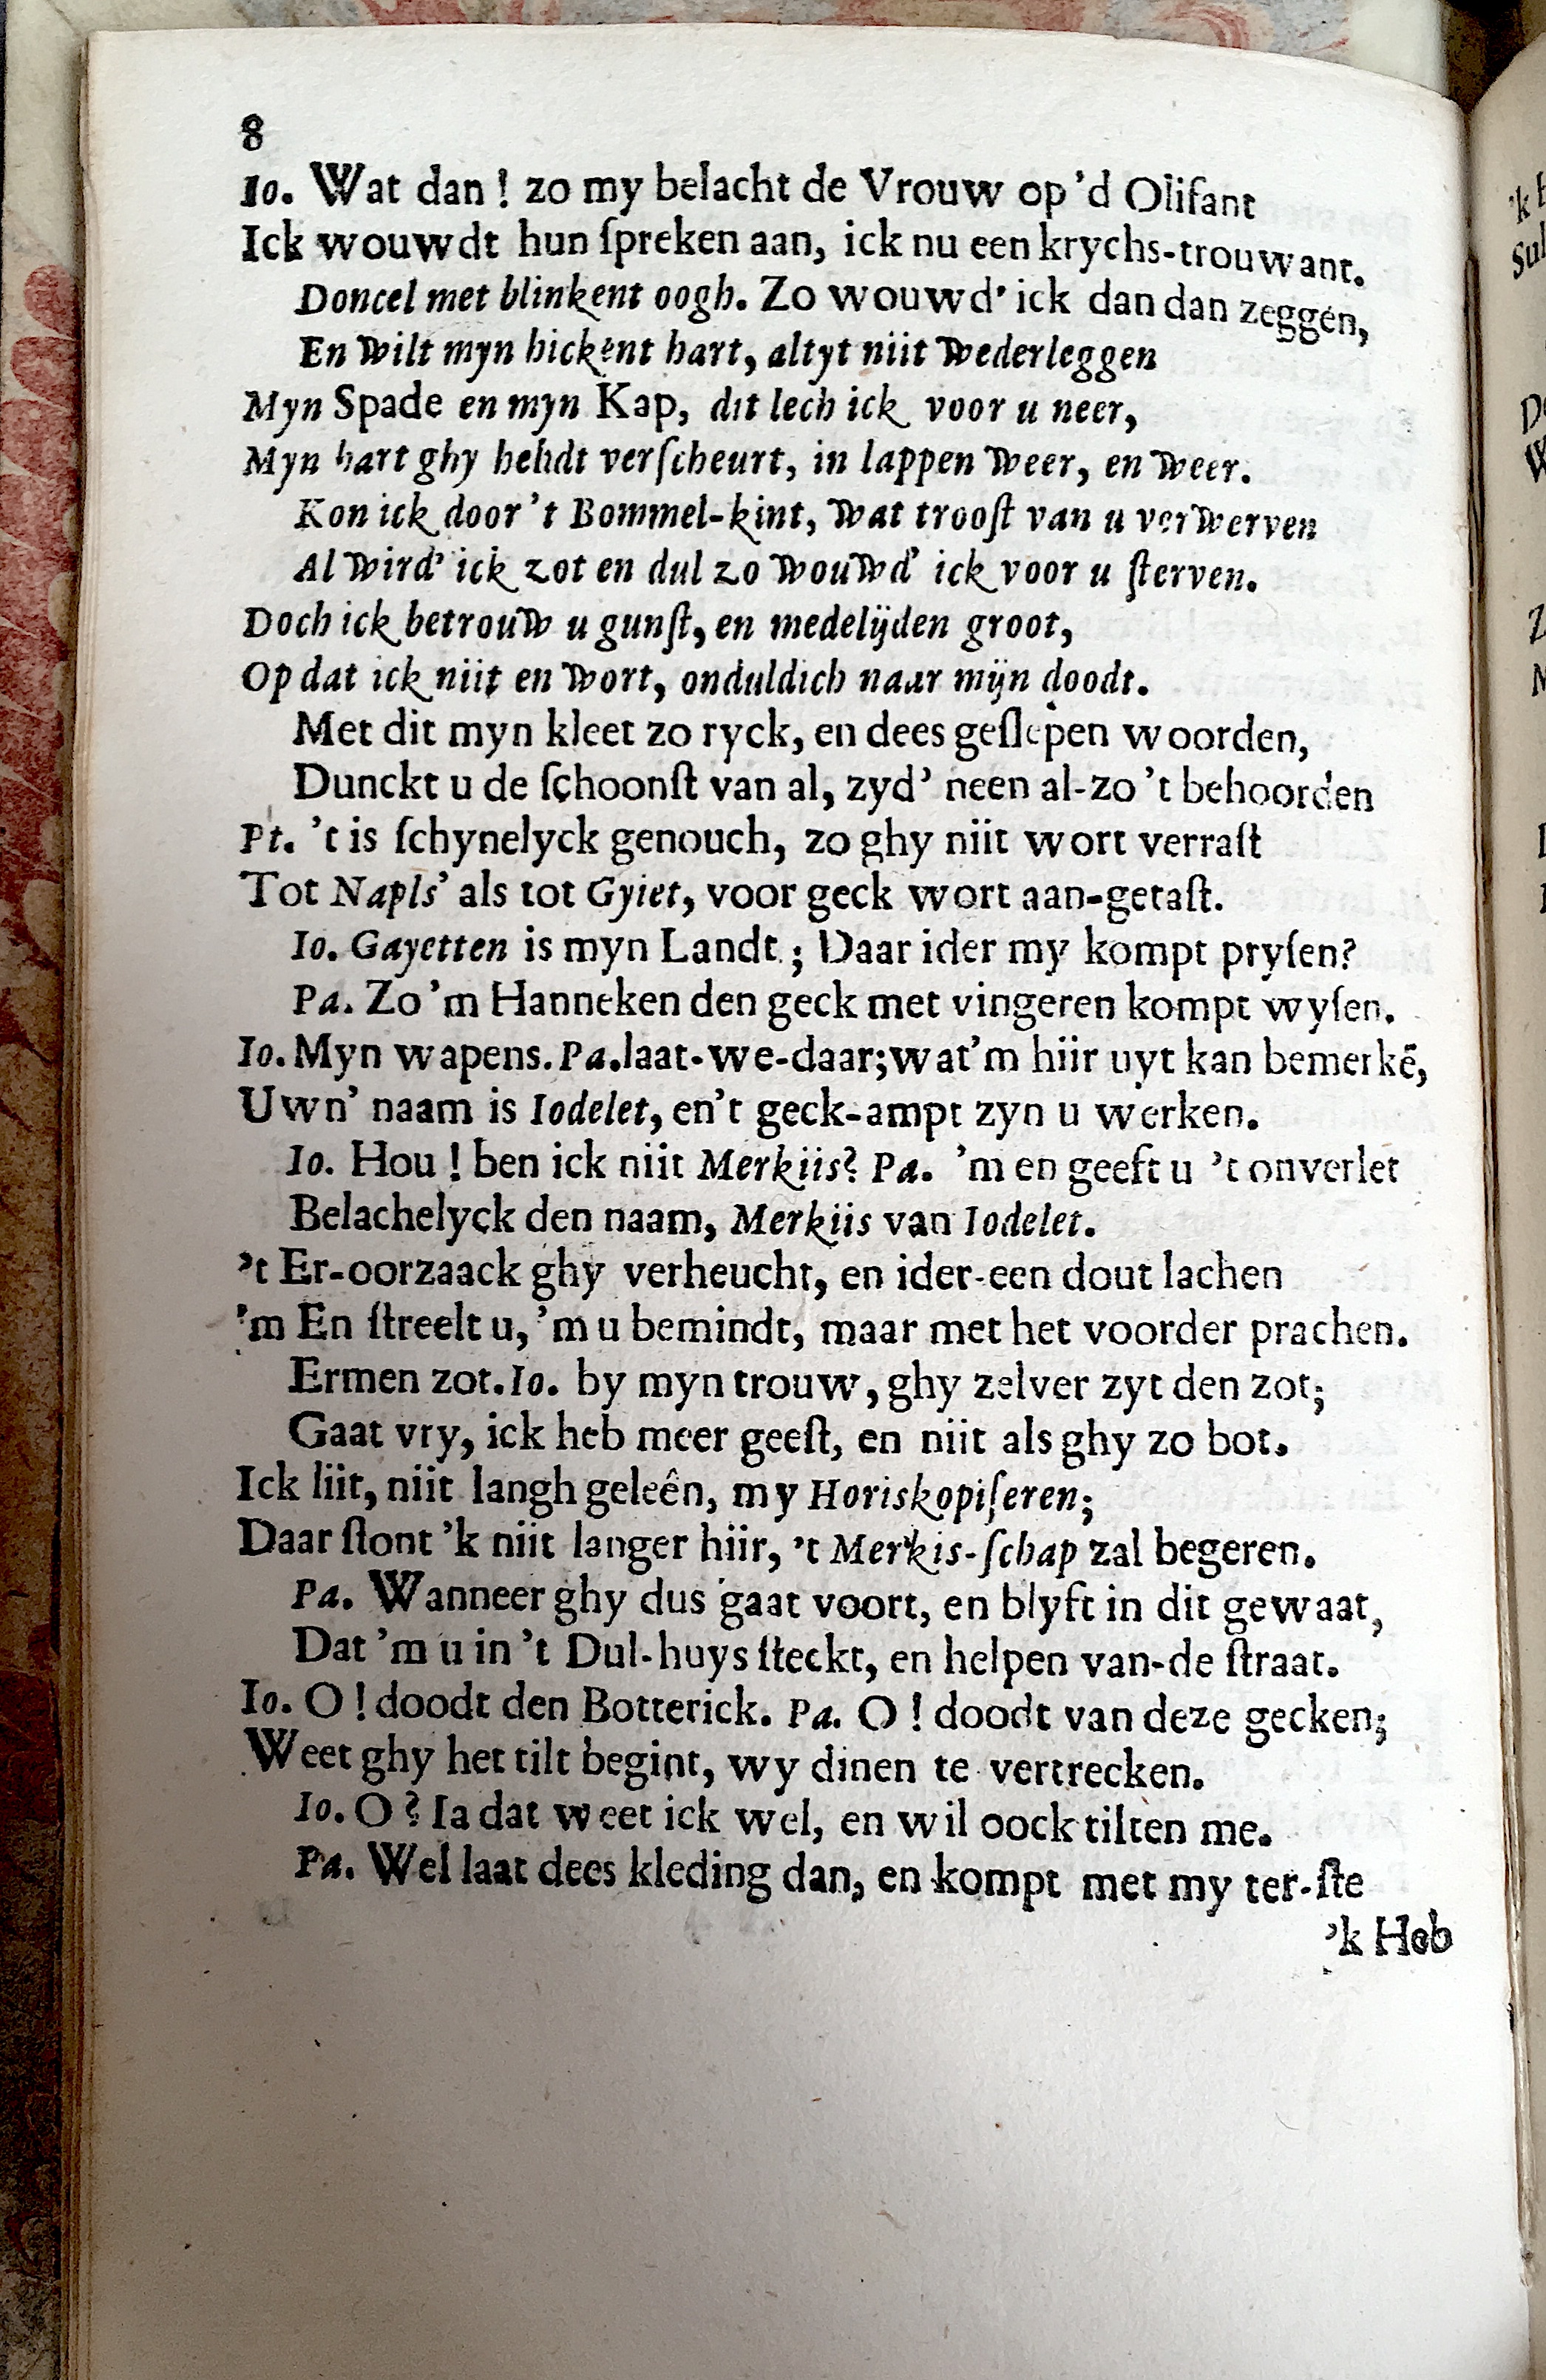 8
Io. Wat dan ! zo my belacht de Vrouw op 'd Olifant
Ick wouwdt hun ſpreken aan, ick nu een krychs-trouwant.
Doncel met blinkent oogh. Zo wouwd' ick dan dan zeggen,
En wilt myn hickent hart, altyt niit wederleggen
Myn Spade en myn Kap, dit lech ick voor u neer,
Myn hart ghy hehdt verſcheurt, in lappen weer, en weer.
Kon ick door 't Bommel-kint, wat trooſt van u verwerven
Al wird' ick zot en dul zo wouwd' ick voor u ſterven.
Doch ick betrouw u gunſt, en medelijden groot,
Op dat ick niit en wort, onduldich naar mijn doodt.
Met dit myn kleet zo ryck, en dees geſlepen woorden,
Dunckt u de ſchoonſt van al, zyd' neen al-zo 't behoorden
Pt. 't is ſchynelyck genouch, zo ghy niit wort verraſt
Tot Napls' als tot Gyiet, voor geck wort aan-getaſt.
Io. Gayetten is myn Landt ; Daar ider my kompt pryſen?
Pa. Zo 'm Hanneken den geck met vingeren kompt wyſen.
Io. Myn wapens. Pa. laat-we-daar; wat'm hiir uyt kan bemerkē,
Uwn' naam is Iodelet, en't geck-ampt zyn u werken.
Io. Hou ! ben ick niit Merkiis? Pa. 'm en geeft u 't onverlet
Belachelyck den naam, Merkiis van Iodelet.
't Er-oorzaack ghy verheucht, en ider-een dout lachen
'm En ſtreelt u, 'm u bemindt, maar met het voorder prachen.
Ermen zot. Io. by myn trouw, ghy zelver zyt den zot;
Gaat vry, ick heb meer geeſt, en niit als ghy zo bot.
Ick liit, niit langh geleên, my Horiskopiſeren;
Daar ſtont 'k niit langer hiir, 't Merkis-ſchap zal begeren.
Pa. Wanneer ghy dus gaat voort, en blyft in dit gewaat,
Dat 'm u in 't Dul-huys ſteckt, en helpen van-de ſtraat.
Io. O ! doodt den Botterick. Pa. O ! doodt van deze gecken;
Weet ghy het tilt begint, wy dinen te vertrecken.
Io. O ? Ia dat weet ick wel, en wil oock tilten me.
Pa. Wel laat dees kleding dan, en kompt met my ter-ſte
'k Heb